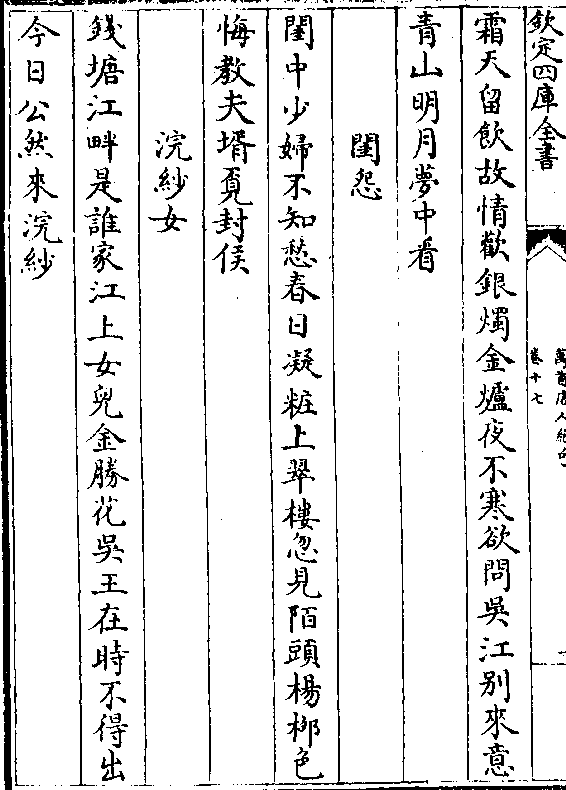 欽定四庫全書
萬首唐人絕句
卷十七
霜天留飲故情歡銀燭金爐夜不寒欲問吳江别來意
青山明月夢中看
閨怨
閨中少婦不知愁春日凝粧上翠樓忽見陌頭楊栁色
悔教夫壻覓封侯
浣紗女
錢塘江畔是誰家江上女兒金勝花吳王在時不得出
今日公然來浣紗